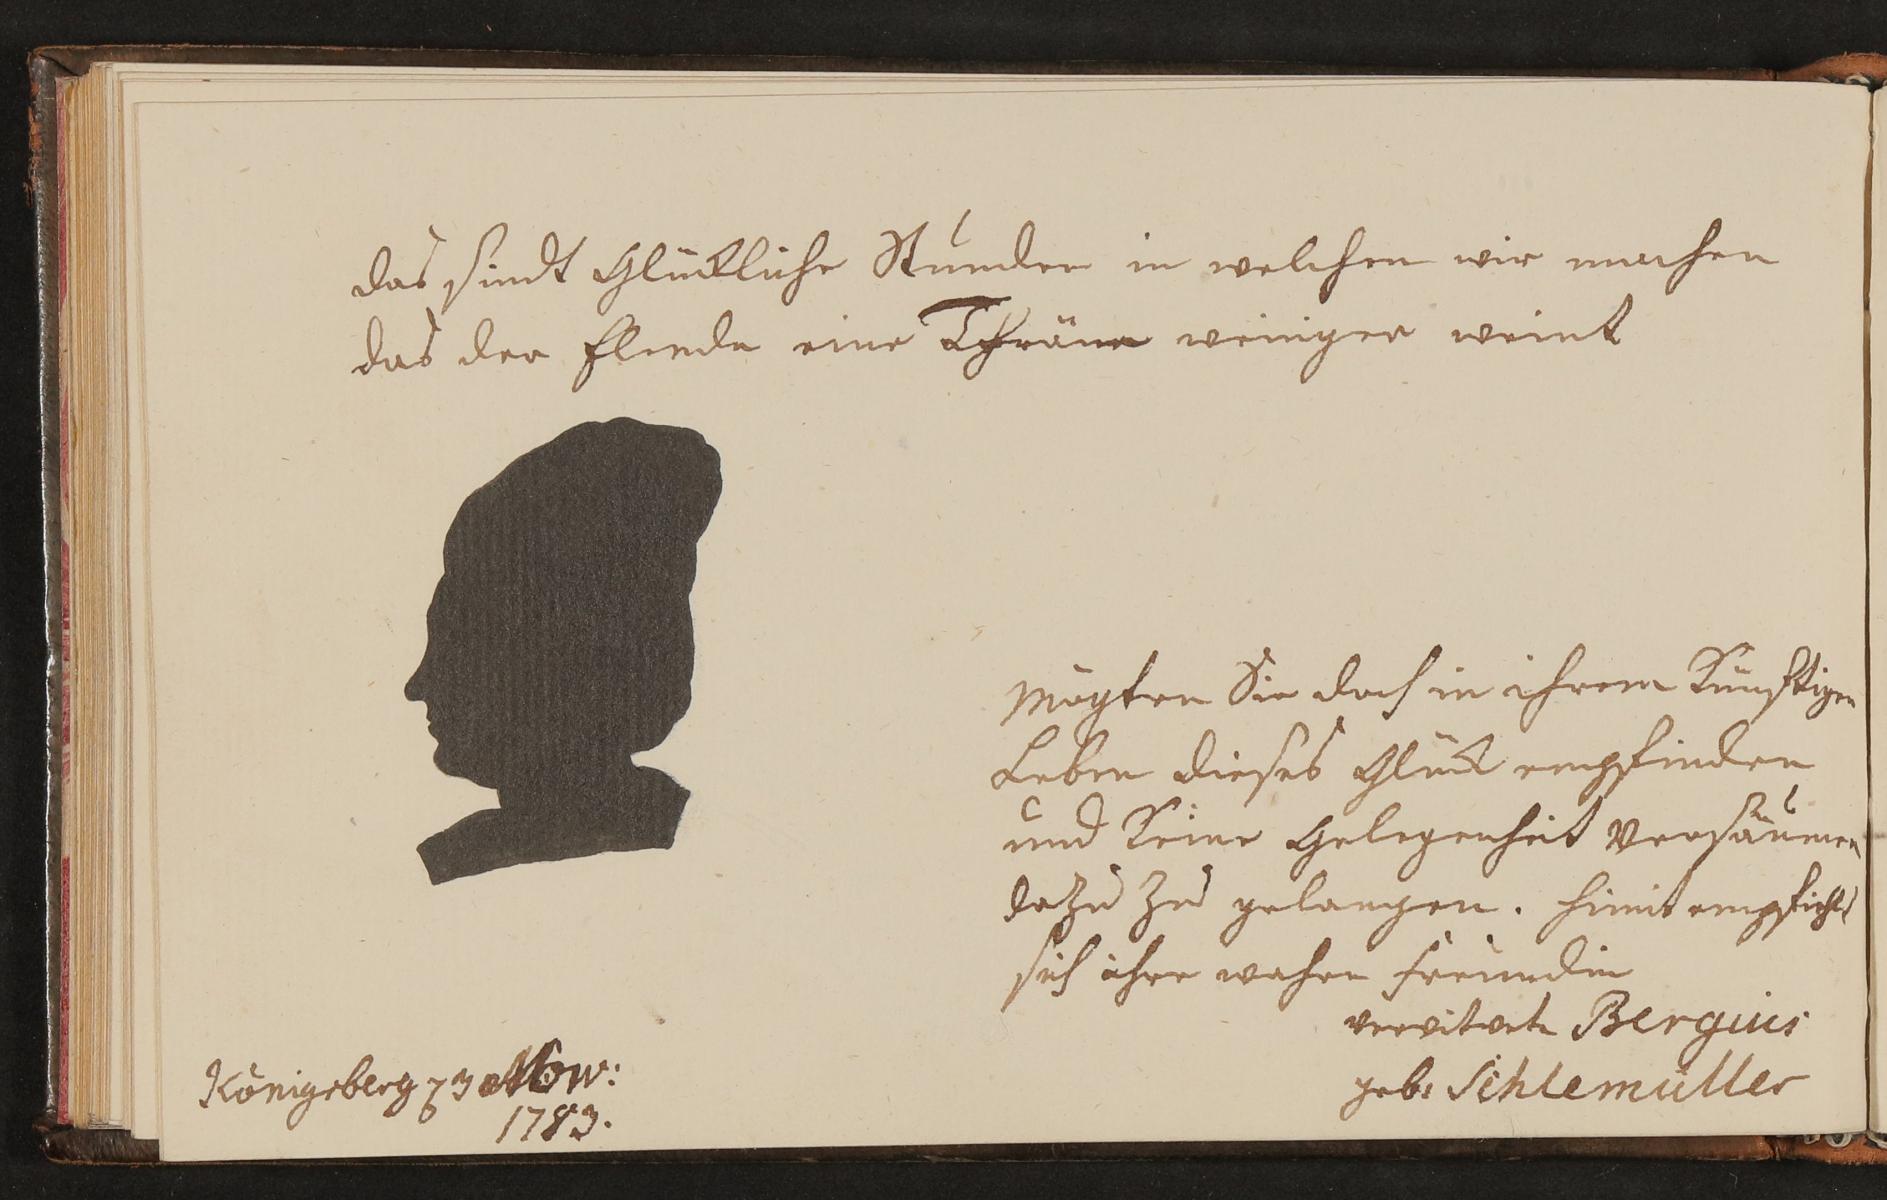 das sindt Glückliche Stunden in welchen wir machen
das der Elende eine Thräne weiniger weint
Mögten Sie doch in ihrem Künftigen
Leben dieses Glück empfinden
und Keine Gelegenheit Versäumen
dazu zu gelangen. hirmit empfiehlt
sich ihre wahre freundin
verwitwete Bergius
geb: Schlemüller
Königsberg 3 Now:
1783.